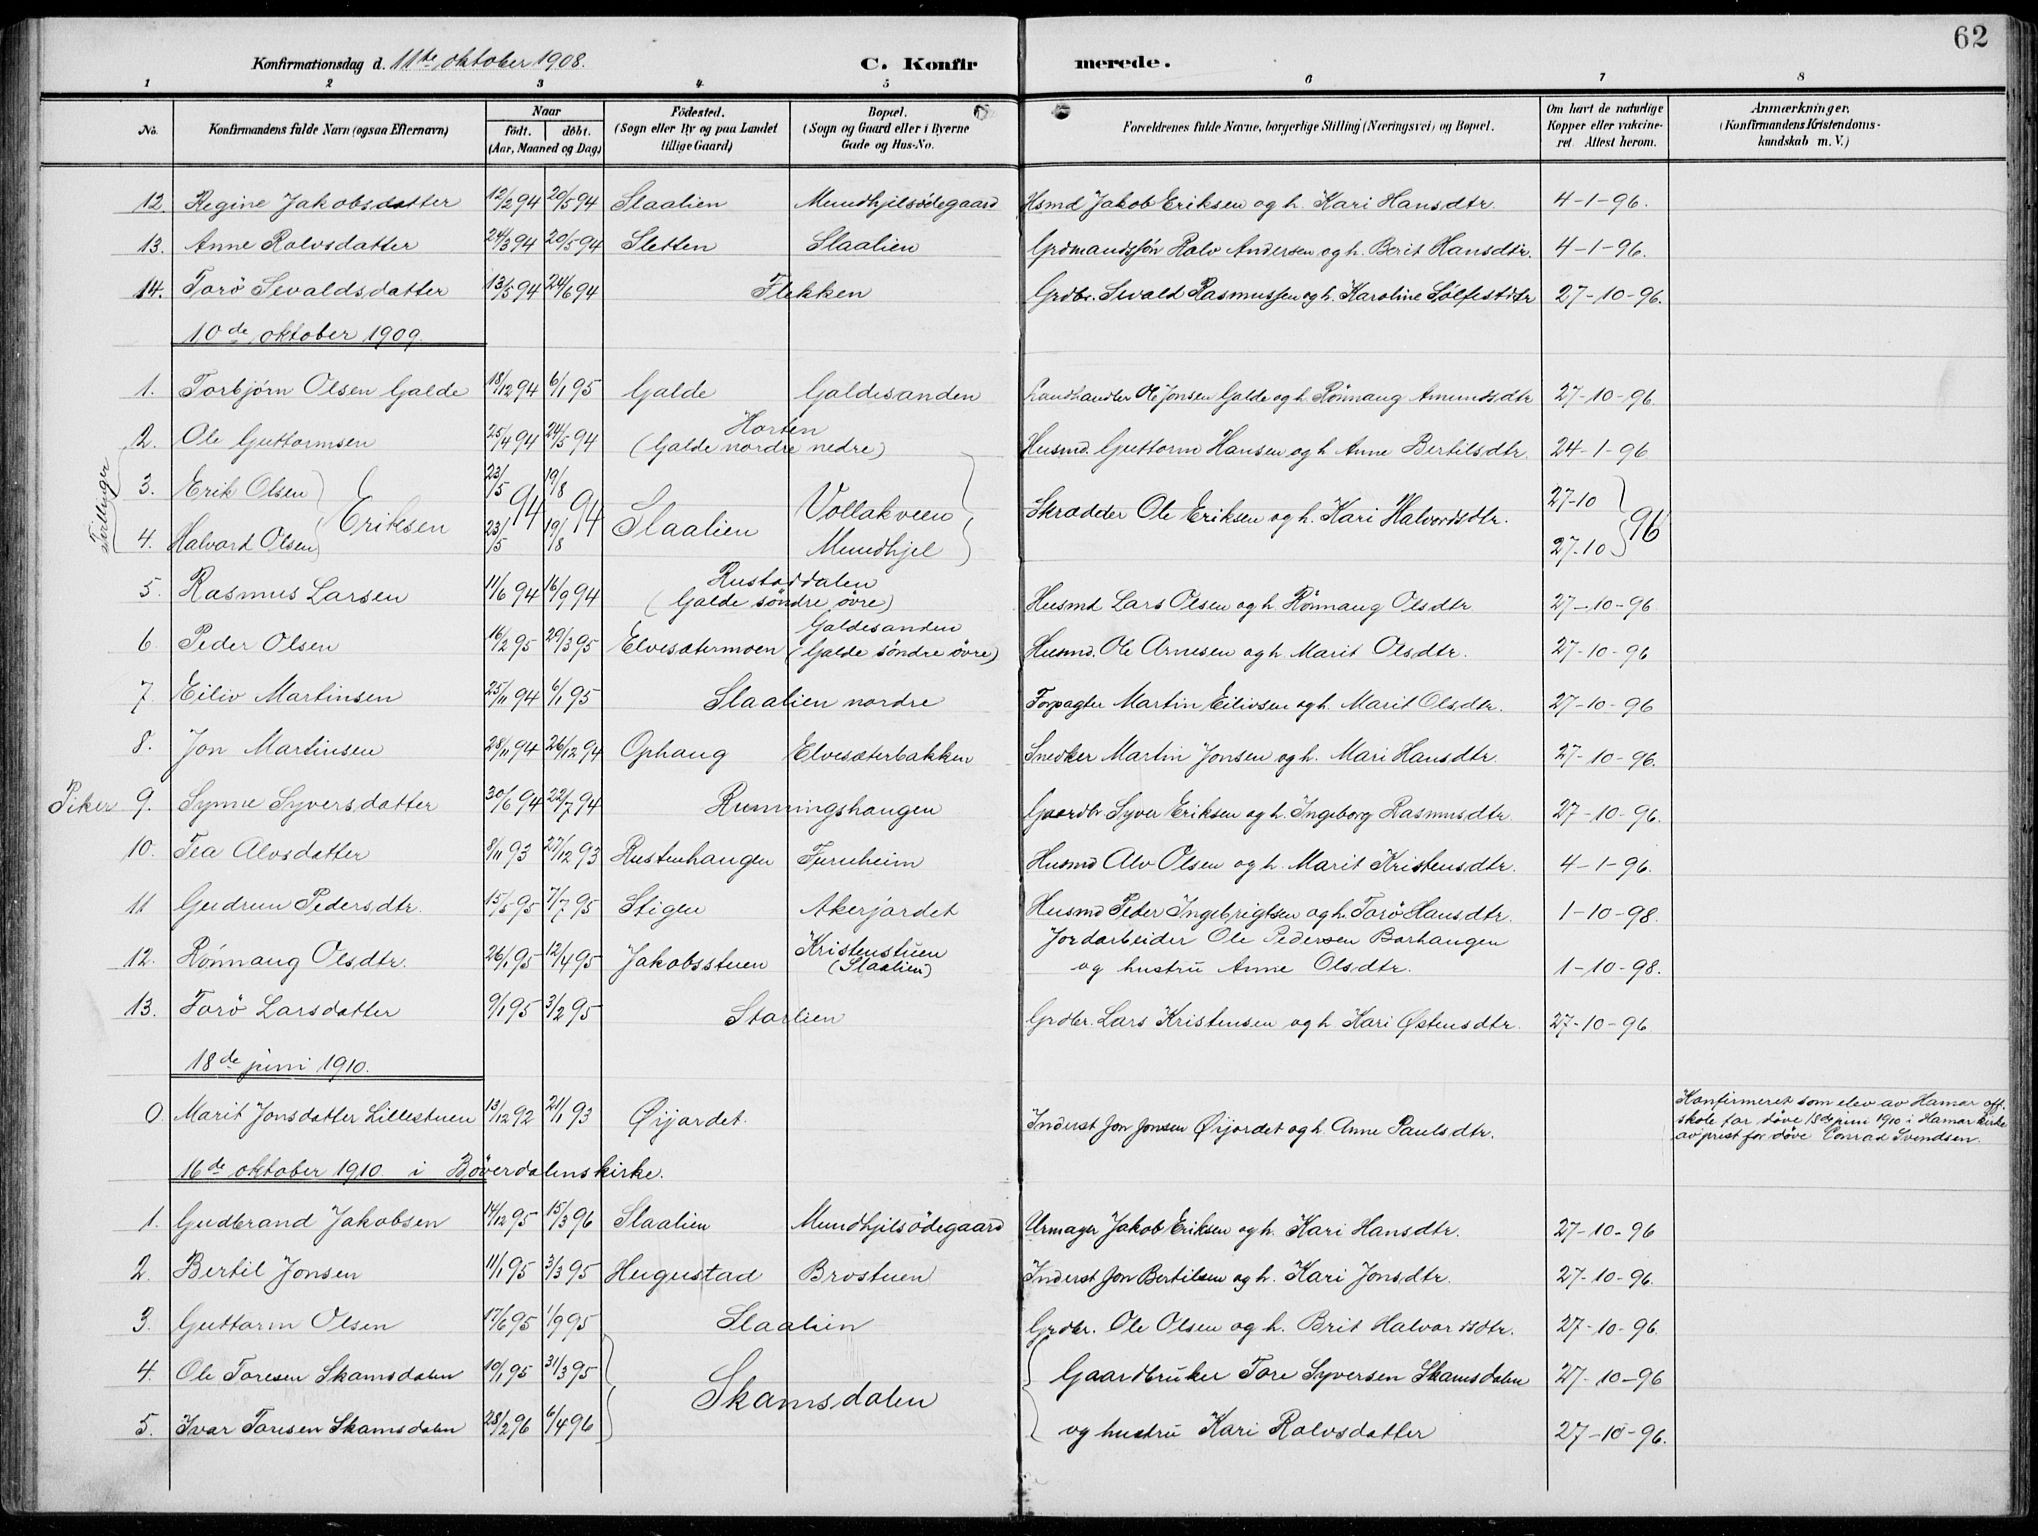 62
Konfirmationsdag d. 11te oktober 1908. C. Konfirmerede.
1 2 3 4 5 6 7 8
No. Konfirmandens fulde Navn (ogsaa Efternavn) Naar født. døbt. (Aar, Maaned og Dag) Födested. (Sogn eller By og paa Landet tillige Gaard) Bopæl. (Sogn og Gaard eller i Byerne Gade og Hus-No. Forældrenes fulde Navne, borgerlige Stilling (Næringsvei) og Bopæl. Om havt de naturlige Kopper eller vakcineret. Attest herom. Anmærkninger. (Konfirmandens Kristendomskundskab m. V.)
12. Regine Jakobsdatter 12/2 94 20/5 94 Slaalien Mundhjelsödegaard Hsmd Jakob Eriksen og h. Kari Hansdtr. 4-1-96.
13. Anne Rolvsdatter 24/3 94 20/5 94 Sletten Slaalien Grdmandssön Rolv Andersen og h. Berit Hansdtr. 4-1-96.
14. Torö Sevaldsdatter 13/5 94 24/6 94 Flekken Grdbr. Sevald Rasmussen og h. Karoline Sölfestdtr 27-10-96.
10de oktober 1909.
1. Torbjörn Olsen Galde 18/12 94 6/1 95 Galde Galdesanden Landhandler Ole Jonsen Galde og h. Rönnaug Amundsdtr 27-10-96.
2. Ole Guttormsen 25/4 94 24/5 94 Horten (Galde nordre nedre) Husmd. Guttorm Hansen og h. Anne Bertilsdtr. 24-1-96
Tvillinger
3. Erik Olsen 23/5 19/8 27-10
Eriksen 94 94 Slaalien Vollakveen Skrædder Ole Eriksen og h. Kari Halvordsdtr. 96
4. Halvard Olsen 23/5 19/8 Mundhjel 27-10
5. Rasmus Larsen 11/6 94 16/9 94 Rustaddalen (Galde söndre övre) Husmd Lars Olsen og h. Rönnaug Olsdtr 27-10-96
6. Peder Olsen 16/2 95 29/3 95 Elvesætermoen Galdesanden (Galde söndre övre) Husmd. Ole Arnesen og h. Marit Olsdtr. 27-10-96
7. Eiliv Martinsen 25/11 94 6/1 95 Slaalien nordre Forpagter Martin Eilivsen og h. Marit Olsdtr. 27-10-96
8. Jon Martinsen 28/11 94 26/12 94 Ophaug Elvesæterbakken Snedker Martin Jonsen og h. Mari Hansdtr. 27-10-96.
Piker 9. Synne Syversdatter 30/6 94 22/7 94 Runningshaugen Gaardbr Syver Eriksen og h. Ingeborg Rasmusdtr. 27-10-96.
10. Tea Alvsdatter 8/11 93 27/12 93 Rustenhaugen Furuheim Husmd Alv Olsen og h. Marit Kristensdtr. 4-1-96.
11 Gudrun Pedersdtr. 15/5 95 7/7 95 Stigen Akerjordet Husmd Peder Ingebrigtsen og h. Torö Hansdtr. 1-10-98.
12. Rönnaug Olsdtr. 26/1 95 12/4 95 Jakobsstuen Kristenstuen (Slaalien) Jordarbeider Ole Pedersen Borhaugen
og hustru Anne Olsdtr. 1-10-98.
13. Torö Larsdatter 9/1 95 3/2 95 Storlien Grdbr. Lars Kristensen og h. Kari Østensdtr. 27-10-96
18de juni 1910.
0. Marit Jonsdatter Lillestuen 13/12 92 21/1 93 Øijordet. Inderst Jon Jonsen Øijordet og h. Anne Paulsdtr. Konfirmeret som elev av Hamar off.
skole for döve 18de juni 1910 i Hamar kirke
av prest for döve Conrad Svendsen.
16de oktober 1910 i Böverdalens kirke.
1. Gudbrand Jakobsen 14/12 95 15/3 96 Slaalien Mundhjelsödegaard Urmager Jakob Eriksen og h. Kari Hansdtr. 27-10-96
2. Bertil Jonsen 11/1 95 3/3 95 Hugustad Brostuen Inderst Jon Bertilsen og h. Kari Jonsdtr. 27-10-96.
3. Guttorm Olsen 17/6 95 1/9 95 Slaalien Grdbr. Ole Olsen og h. Brit Halvordsdtr. 27-10-96.
4. Ole Toresen Skamsdalen 10/1 95 31/3 95 Skamsdalen Gaardbruker Tore Syversen Skamsdalen 27-10-96
5. Ivar Toresen Skamsdalen 28/2 96 6/4 96 og hustru Kari Rolvsdatter 27-10-96.